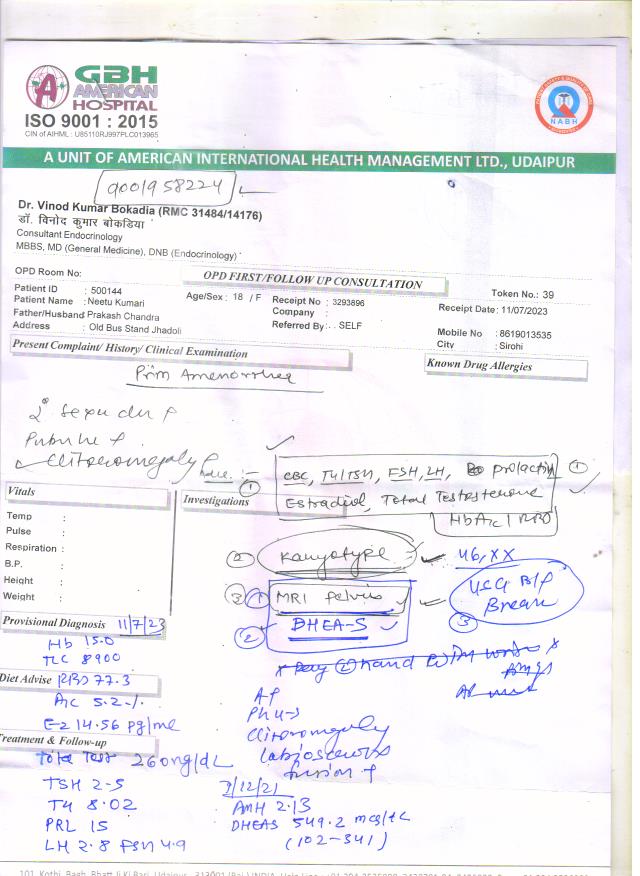 GBH
AMERICAN
HOSPITAL
ISO 9001 : 2015
CIN of AIHML : U85110RJ997PLC013965
NABH
A UNIT OF AMERICAN INTERNATIONAL HEALTH MANAGEMENT LTD., UDAIPUR
9001958224
Dr. Vinod Kumar Bokadia (RMC 31484/14176)
डॉ. विनोद कुमार बोकडिया
Consultant Endocrinology
MBBS, MD (General Medicine), DNB (Endocrinology)
OPD Room No:
OPD FIRST/FOLLOW UP CONSULTATION
Token No.: 39
Patient ID : 500144
Age/Sex : 18 / F
Receipt No : 3293896
Receipt Date: 11/07/2023
Patient Name : Neetu Kumari
Company :
Father/Husband Prakash Chandra
Referred By : SELF
Mobile No : 8619013535
Address : Old Bus Stand Jhadoli
City : Sirohi
Present Complaint/ History/ Clinical Examination
Known Drug Allergies
Prim Amenorrhea
Clitoromegaly
① CBC, T4/TSH, FSH, LH, prolactin ①
Estradiol, Total Testosterone
HbA1c / RBS
Vitals
Investigations
Temp :
Pulse :
Respiration :
B.P. :
Height :
Weight :
② Karyotype 46,XX
③ ① MRI Pelvis
USG B/L
Breast
③
② DHEA-S
Provisional Diagnosis 11/7/23
Hb 15.0
TLC 8900
Diet Advise RBS 77.3
A1C 5.2%
E2 14.56 pg/ml
Treatment & Follow-up
Total Test 260ng/dL
TSH 2.5
T4 8.02
PRL 15
LH 2.8 FSH 4.9
Clitoromegaly
fusion +
2/12/21
AMH 2.13
DHEAS 549.2 mcg/dL
(102-341)